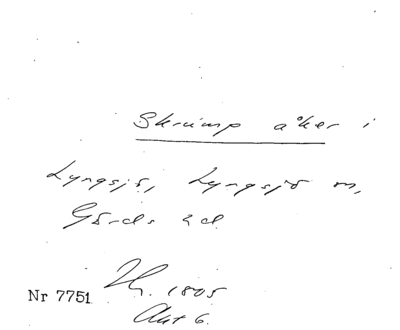 Skrump åker i
Lyngsjö, Lyngsjö sn,
Gärds hd
Nr 7751 1805
Akt 6.